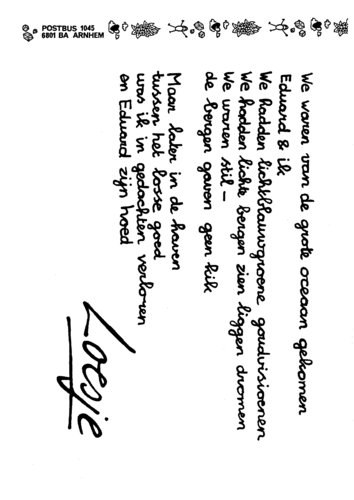 POSTBUS 1045
6801 BA ARNHEM
We waren van de grote oceaan gekomen
Eduard & ik
We hadden lichtblauwgroene goudvisioenen
We hadden lichte bergen zien liggen dromen
We waren stil –
de bergen gaven geen kik
Maar later in de haven
tussen het losse goed
was ik in gedachten verloren
en Eduard zijn hoed
Loesje